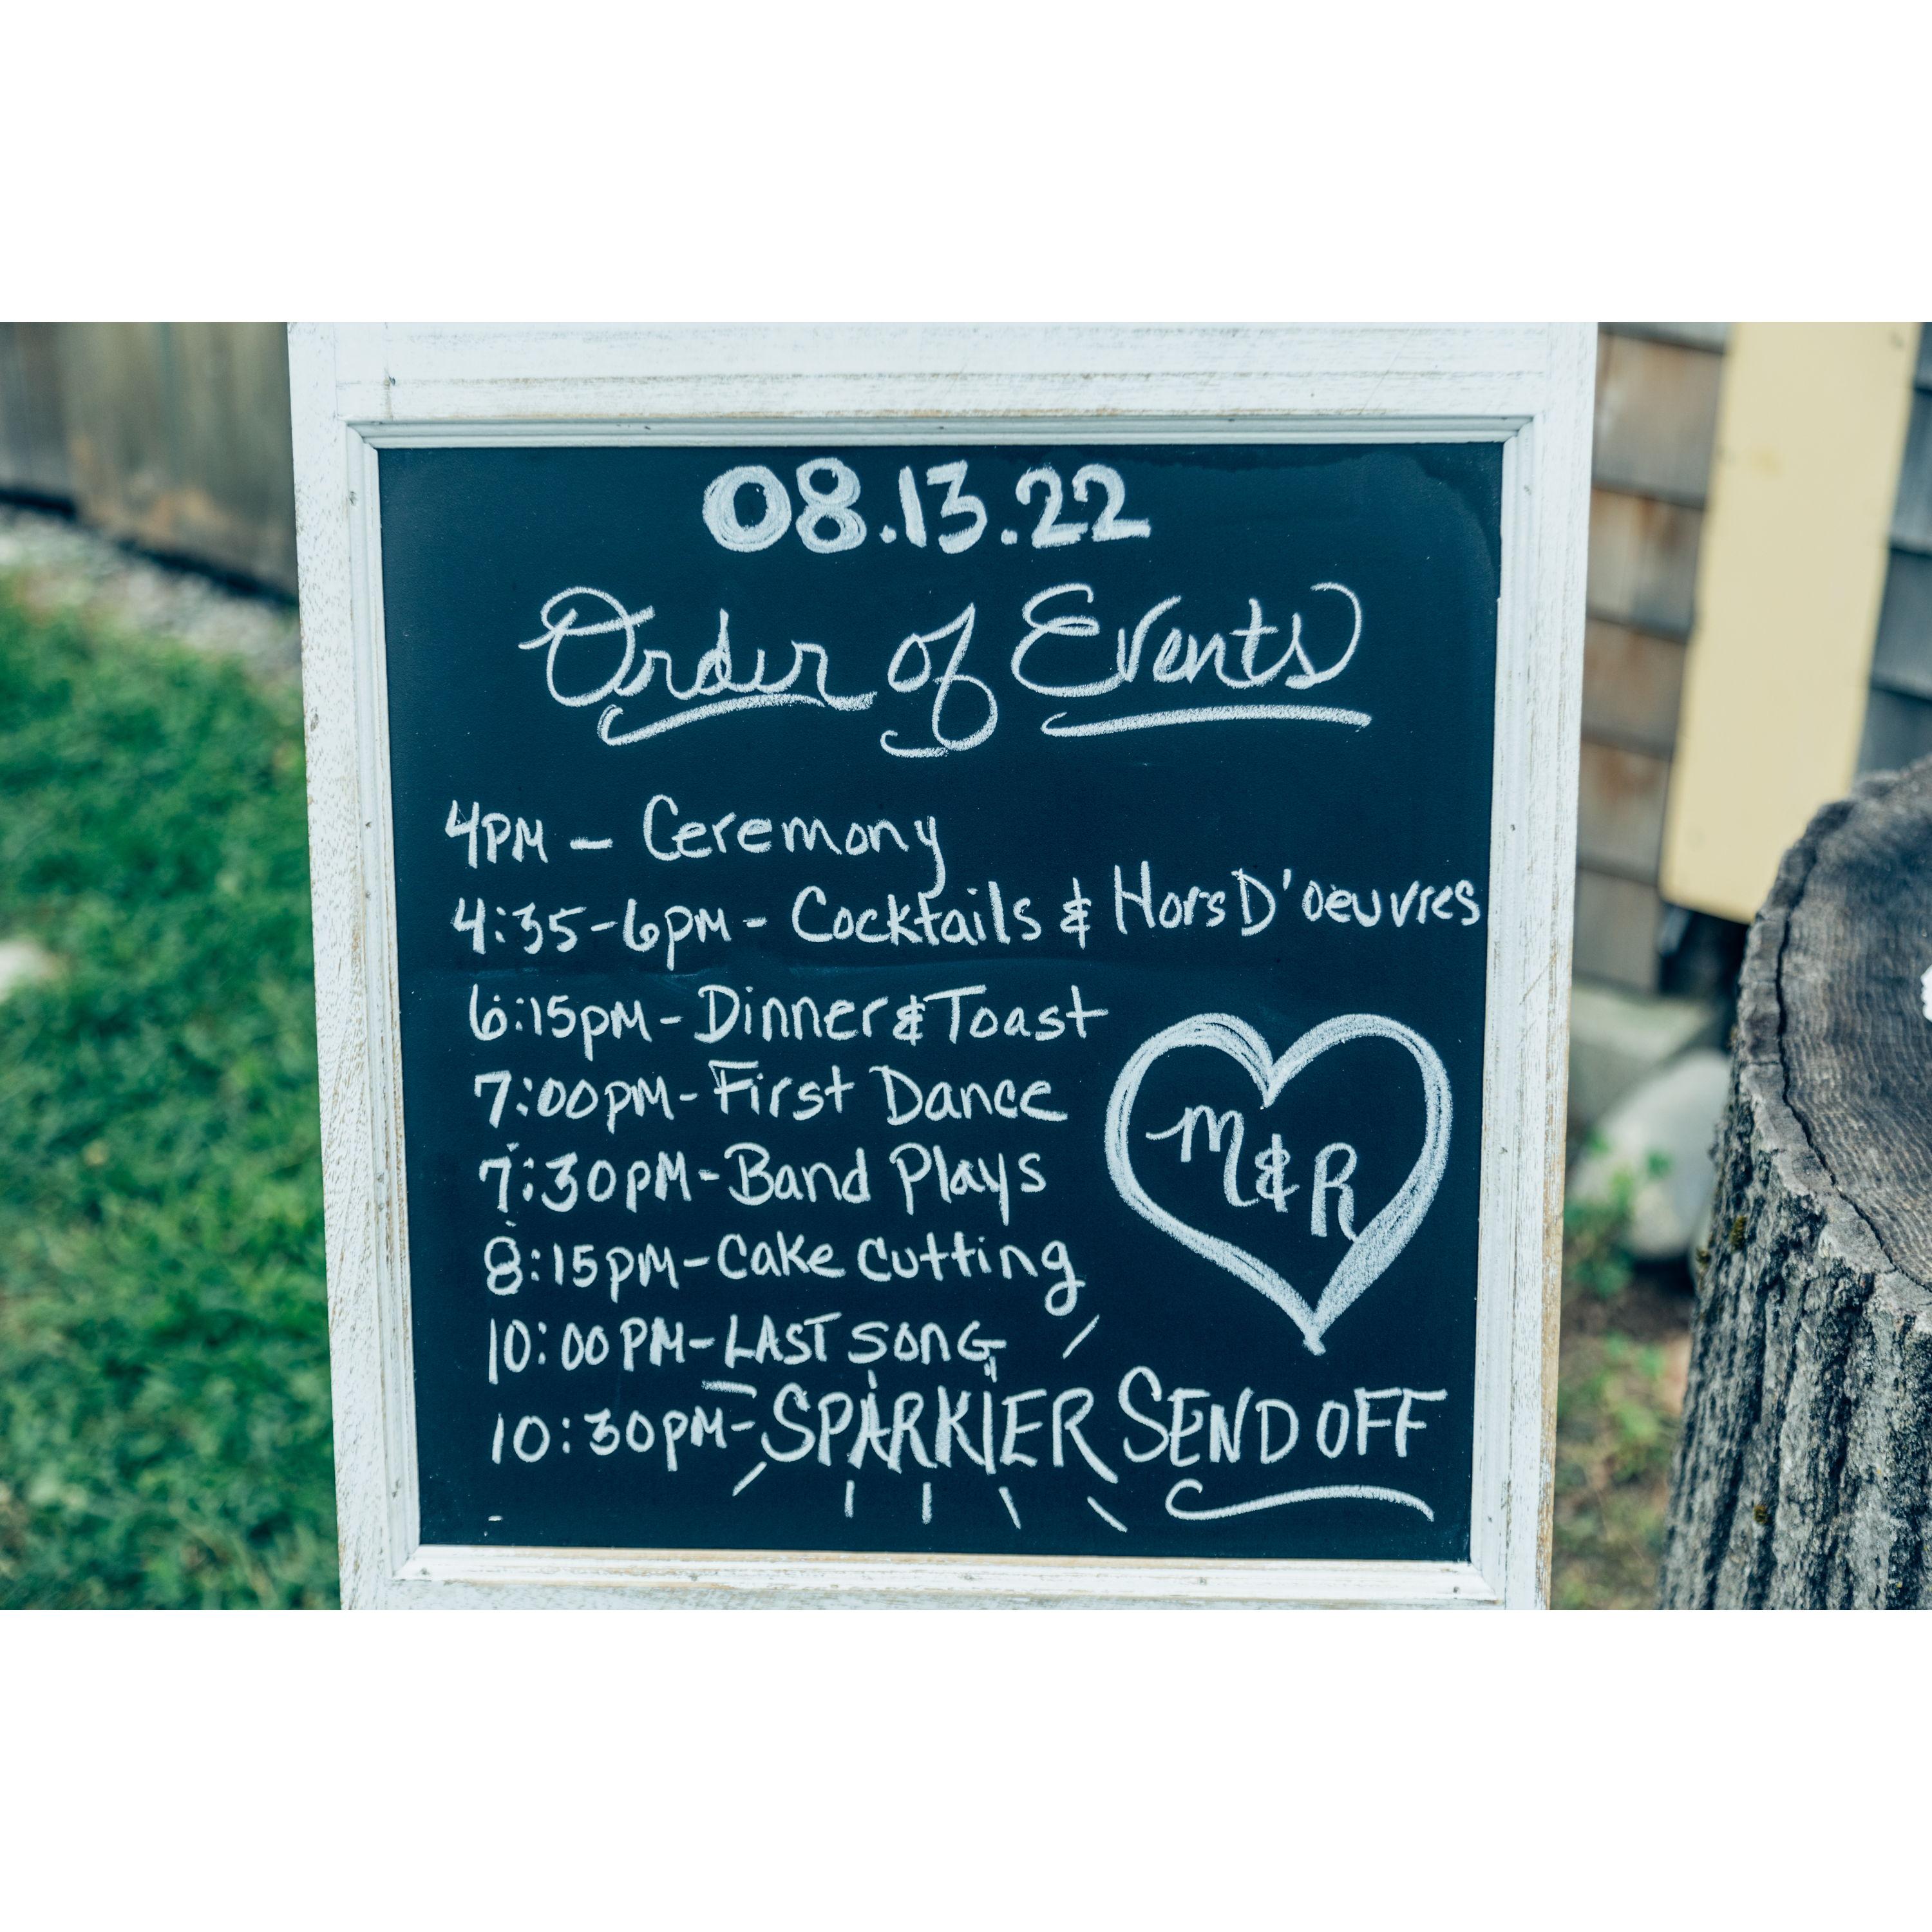 08.13.22
Order of Events
4PM - Ceremony
4:35-6PM - Cocktails & Hors D'oeuvres
6:15PM - Dinner & Toast
7:00PM - First Dance
7:30PM - Band Plays
8:15PM - Cake Cutting
10:00PM - LAST SONG
10:30PM - SPARKLER SEND OFF
M & R